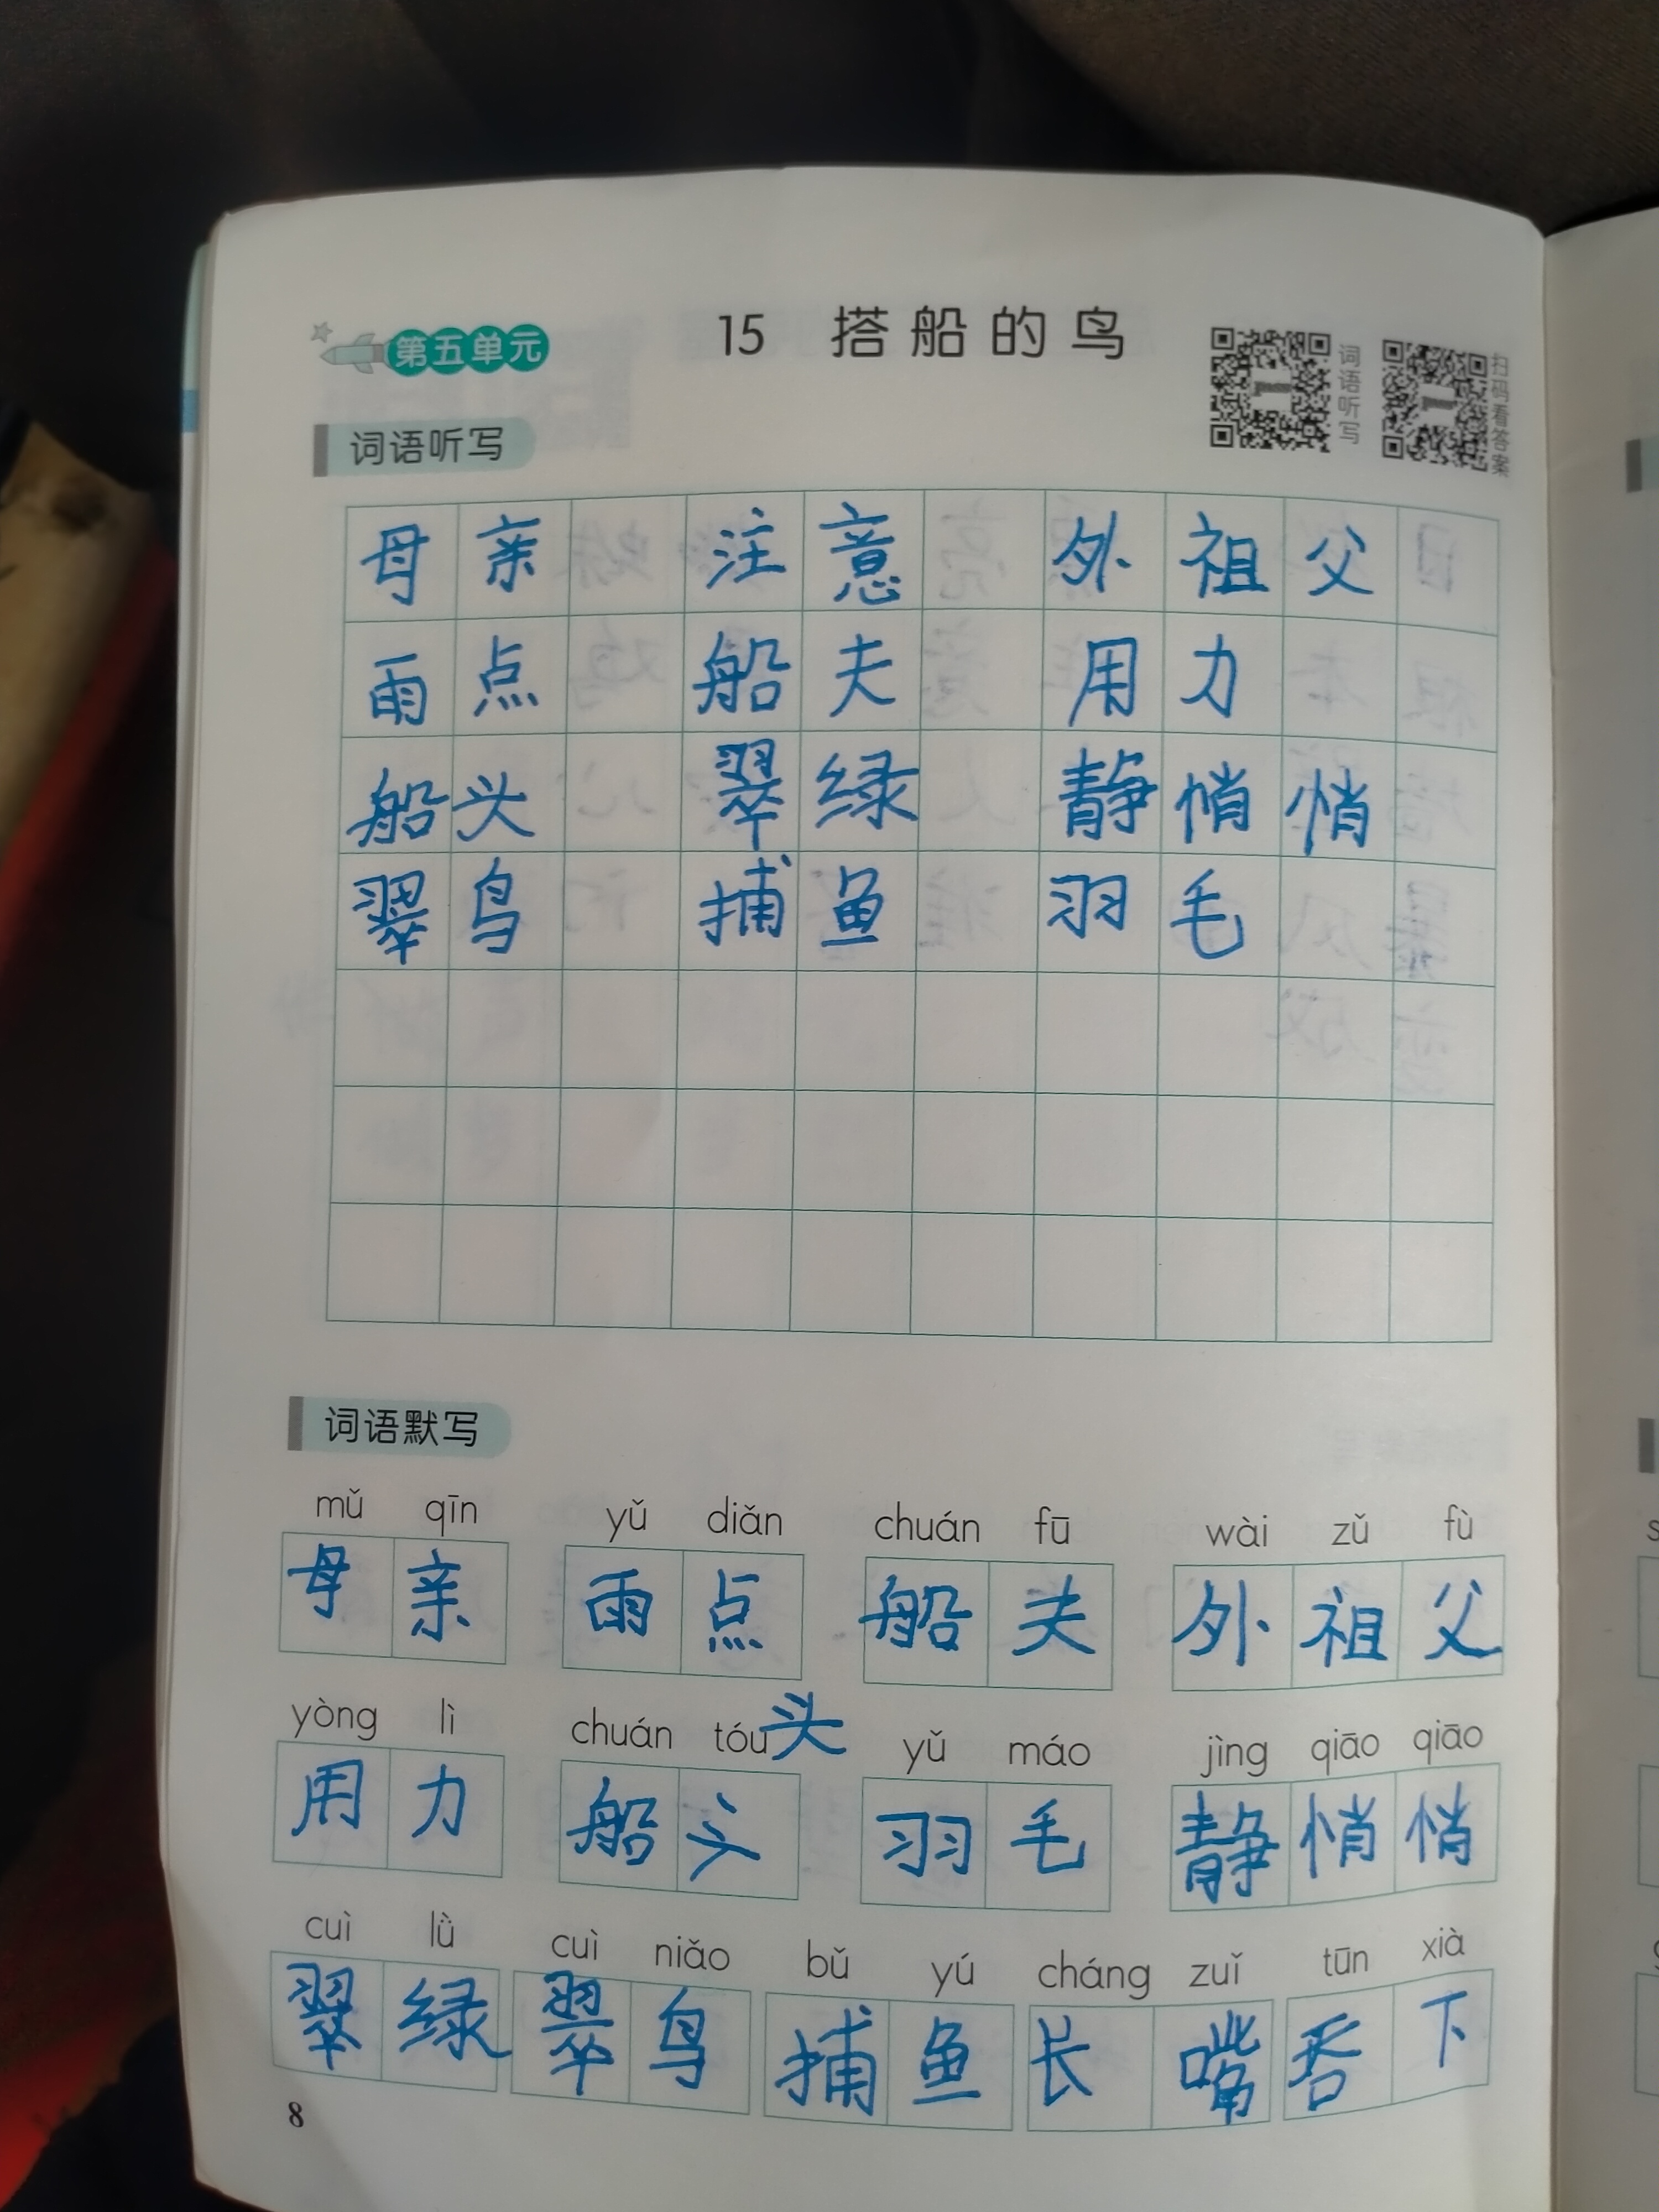 第五单元 15 搭船的鸟
词语听写 扫码看答案
词语听写
母亲 注意 外祖父
雨点 船夫 用力
船头 翠绿 静悄悄
翠鸟 捕鱼 羽毛
词语默写
mǔ qīn yǔ diǎn chuán fū wài zǔ fù
母亲 雨点 船夫 外祖父
yòng lì chuán tóu 头 yǔ máo jìng qiāo qiāo
用力 船 羽毛 静悄悄
cuì lǜ cuì niǎo bǔ yú cháng zuǐ tūn xià
翠绿 翠鸟 捕鱼 长嘴 吞下
8